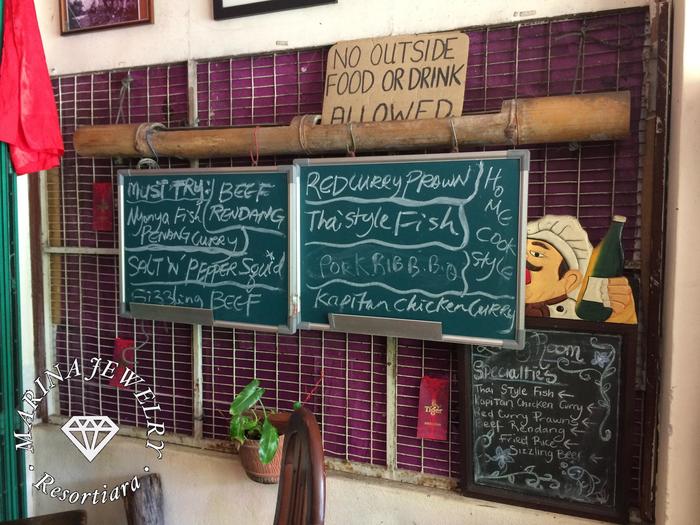 NO OUTSIDE
FOOD OR DRINK
ALLOWED
MUST TRY: BEEF
Nyonya Fish RENDANG
PENANG CURRY
SALT 'N' PEPPER Squid
Sizzling BEEF
RED CURRY PRAWN
Thai Style Fish
PORK RIB B.B.Q
Kapitan Chicken Curry
HOME
COOK
STYLE
Room
Specialties
Thai Style Fish
Kapitan Chicken Curry
Red Curry Prawns
Beef Rendang
Fried Rice
Sizzling Beef
Tiger
MARINA JEWELRY
Resortiara